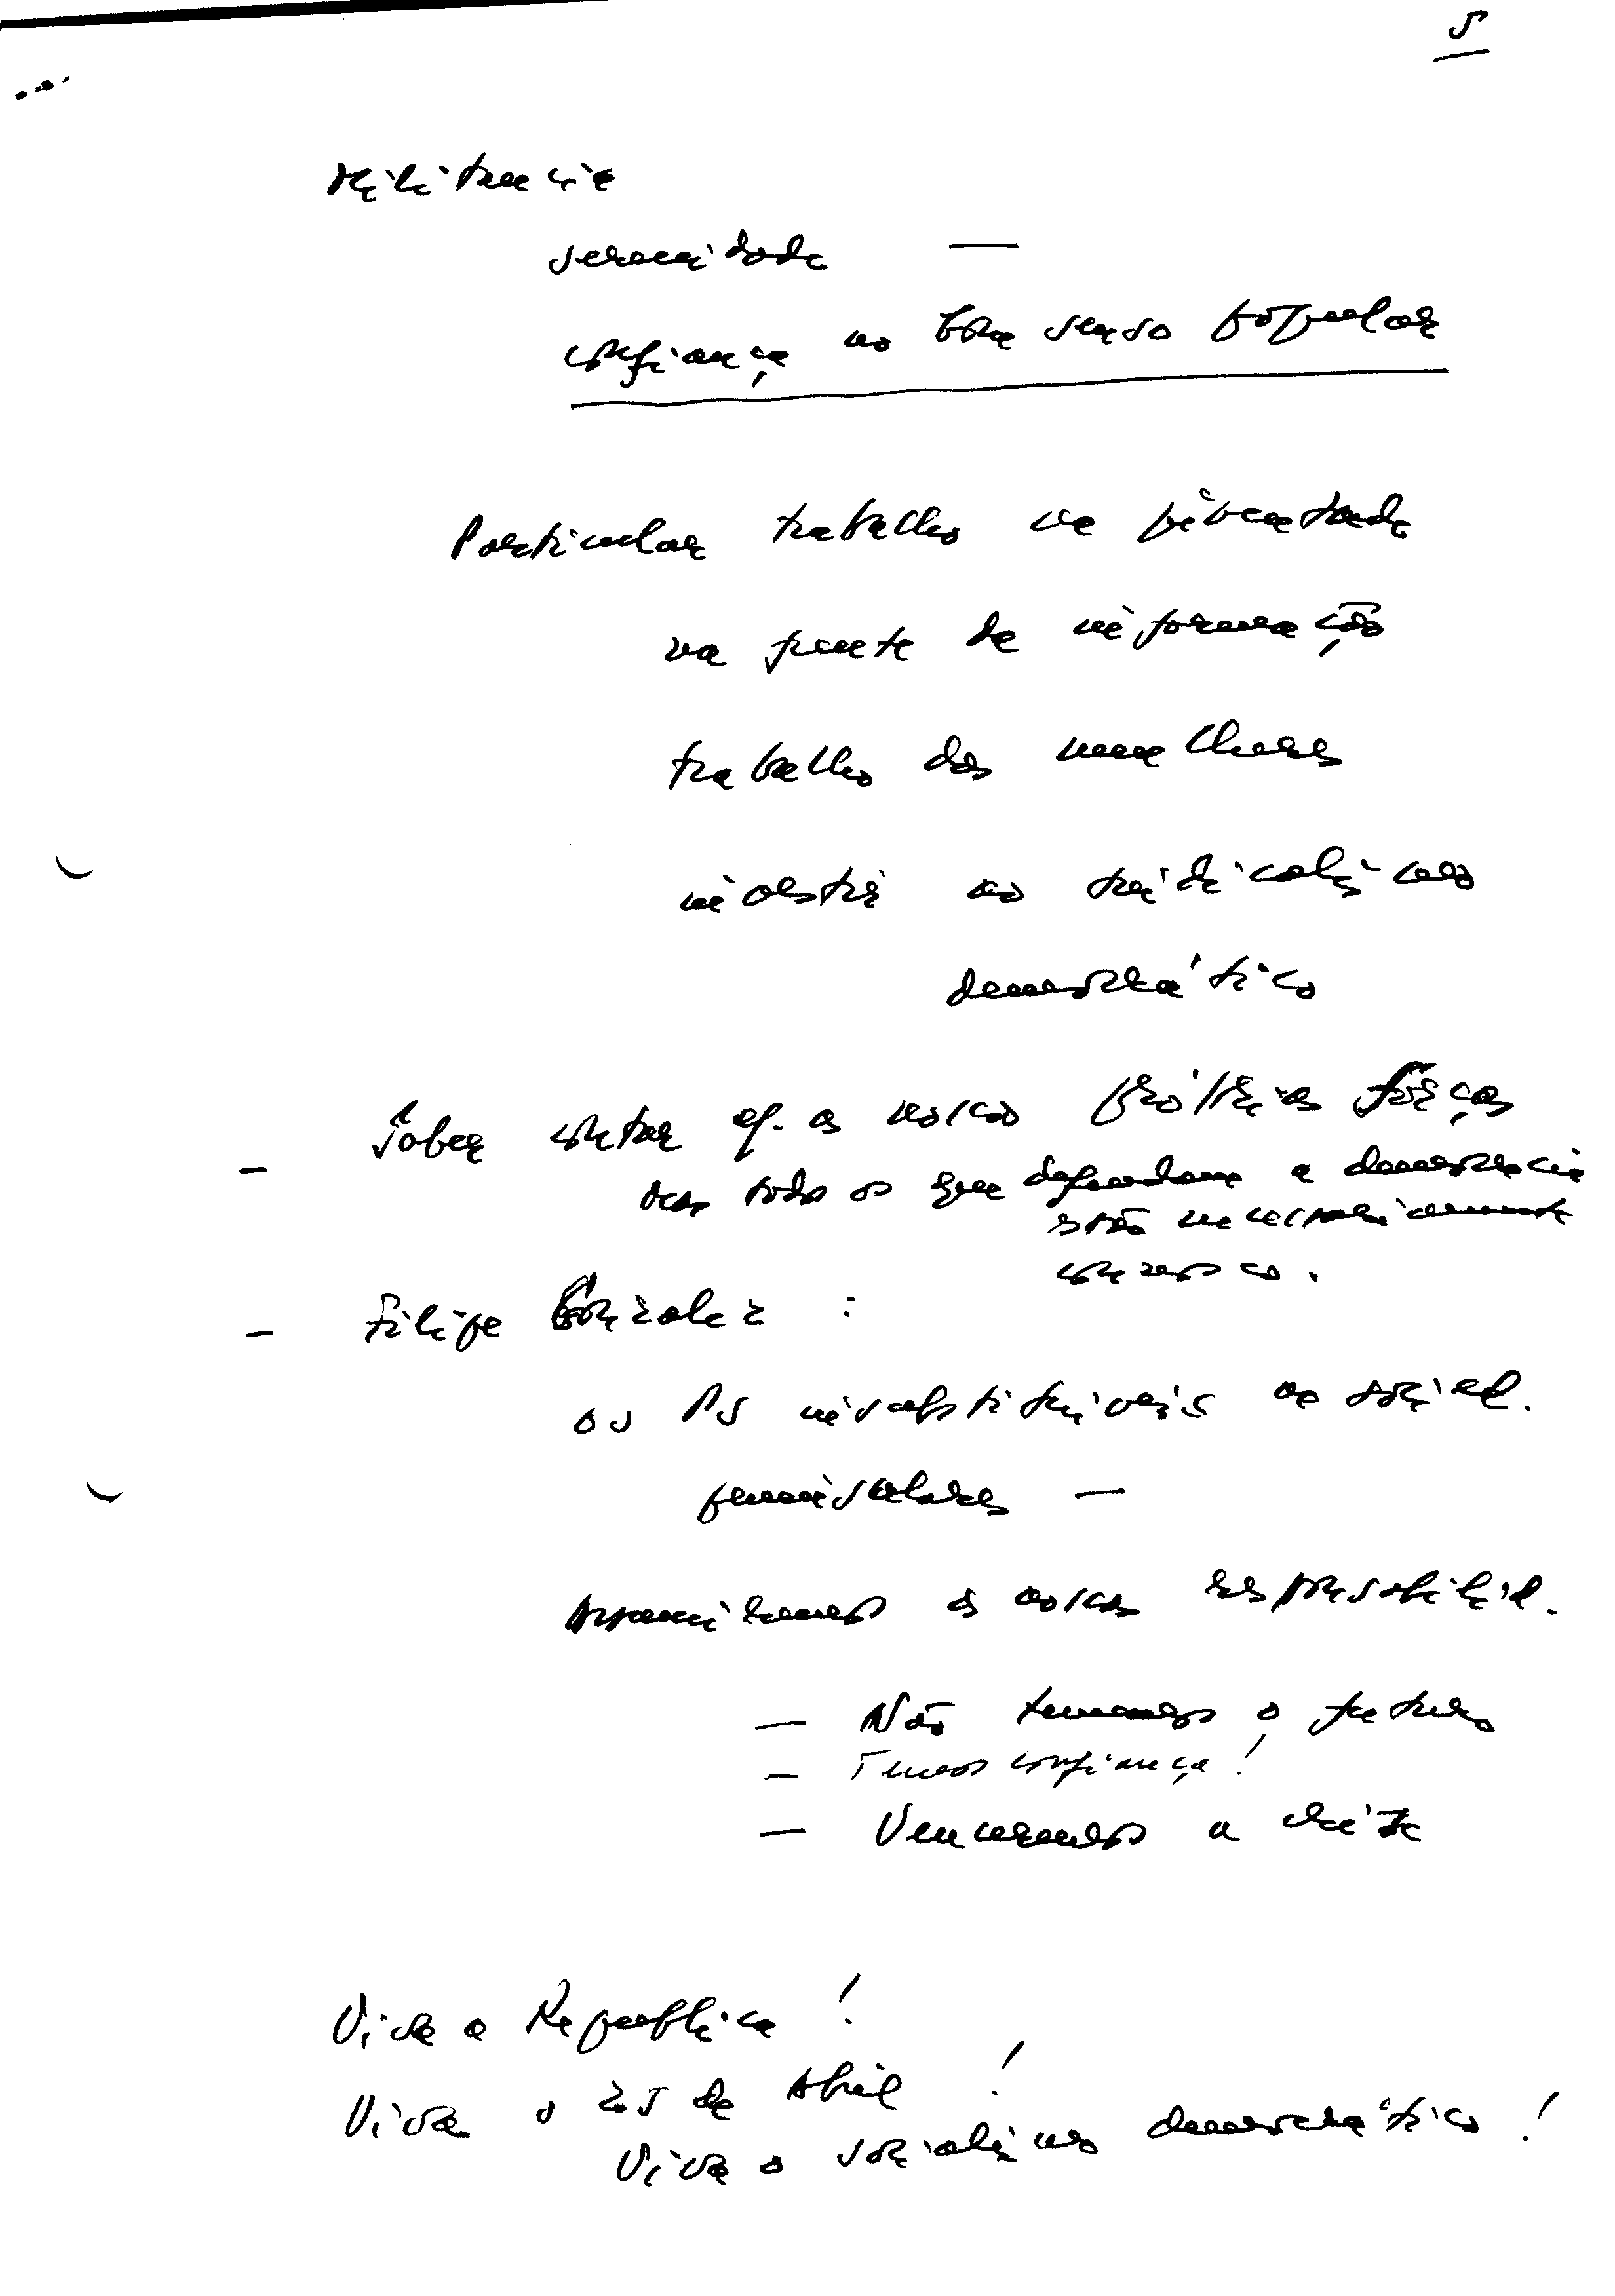 5
Militancia
serenidade —
confiança no bom senso popular
Particular trabalho na juventude
na frente da informação
trabalho das mulheres
no sindicalismo
democrático
— Saber contar c/. as nossas próprias forças
mas todos os que defendam a democracia
estão necessariamente
connosco.
— Filipe Gonzalez :
os PS insubstituíveis na socied.
peninsulares —
Assumiremos as nossas responsabilid.
— Não tememos o futuro
— Temos confiança !
— Venceremos a crise
Viva a Republica !
Viva o 25 de Abril !
Viva o socialismo democrático !